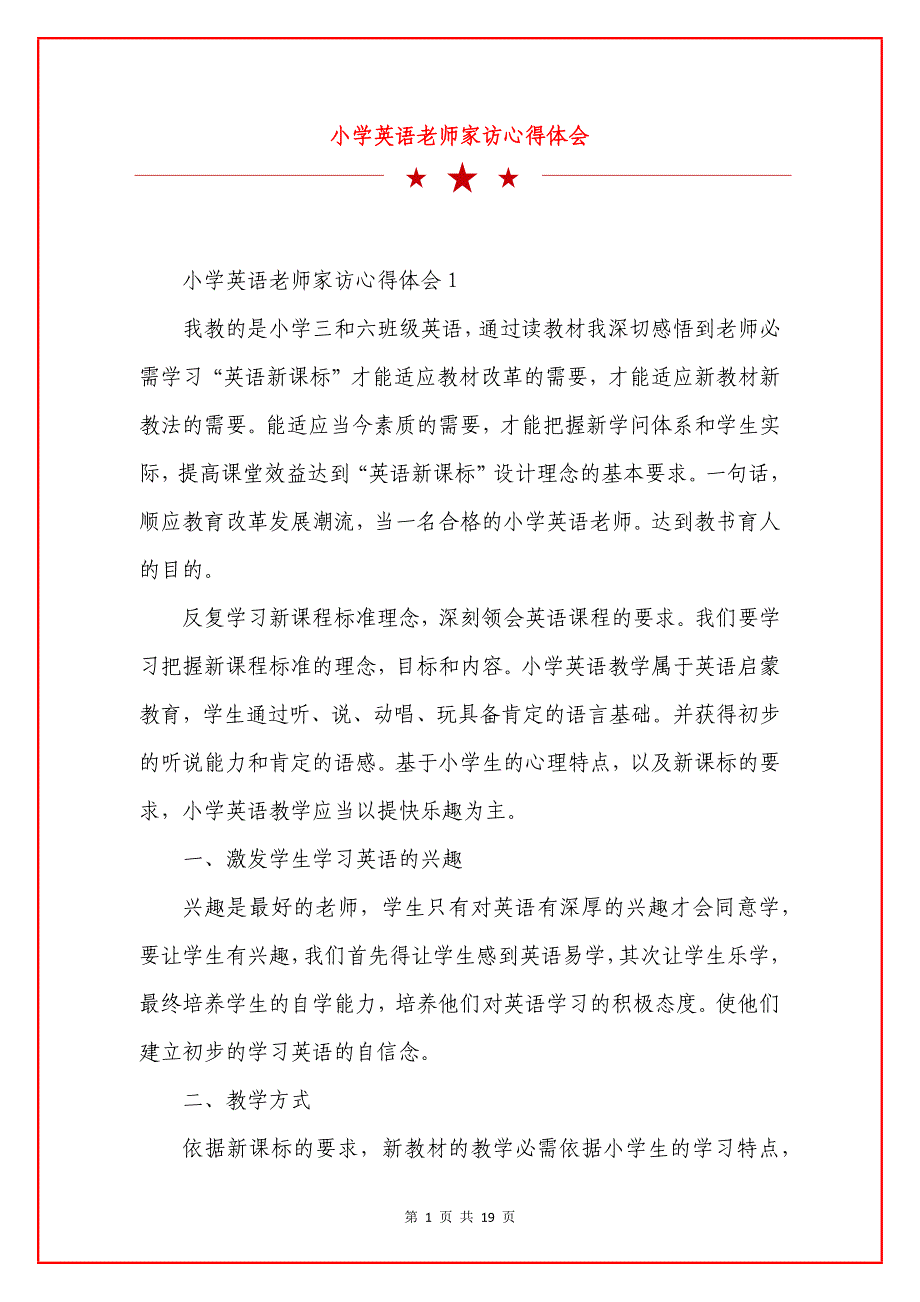 小学英语老师家访心得体会
小学英语老师家访心得体会 1
我教的是小学三和六班级英语，通过读教材我深切感悟到老师必
需学习“英语新课标”才能适应教材改革的需要，才能适应新教材新
教法的需要。能适应当今素质的需要，才能把握新学问体系和学生实
际，提高课堂效益达到“英语新课标”设计理念的基本要求。一句话，
顺应教育改革发展潮流，当一名合格的小学英语老师。达到教书育人
的目的。
反复学习新课程标准理念，深刻领会英语课程的要求。我们要学
习把握新课程标准的理念，目标和内容。小学英语教学属于英语启蒙
教育，学生通过听、说、动唱、玩具备肯定的语言基础。并获得初步
的听说能力和肯定的语感。基于小学生的心理特点，以及新课标的要
求，小学英语教学应当以提快乐趣为主。
一、激发学生学习英语的兴趣
兴趣是最好的老师，学生只有对英语有深厚的兴趣才会同意学，
要让学生有兴趣，我们首先得让学生感到英语易学，其次让学生乐学，
最终培养学生的自学能力，培养他们对英语学习的积极态度。使他们
建立初步的学习英语的自信念。
二、教学方式
依据新课标的要求，新教材的教学必需依据小学生的学习特点，
第 1 页 共 19 页